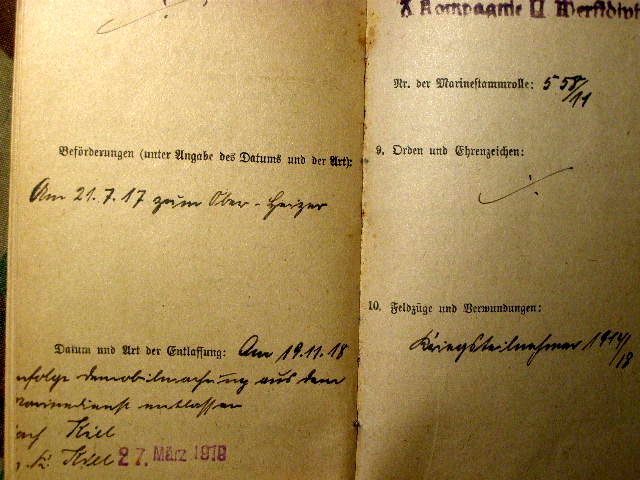 Beförderungen (unter Angabe des Datums und der Art):
Am 21.7.17 zum Ober-Heizer
Datum und Art der Entlassung: Am 19.11.18
nfolge Demobilmachung aus dem
Marinedienst entlassen
nach Kiel
Kiel 27. März 1919
X Kompagnie II Werftdivi
Nr. der Marinestammrolle: 558/11
9. Orden und Ehrenzeichen:
./.
10. Feldzüge und Verwundungen:
Kriegsteilnehmer 1914/18